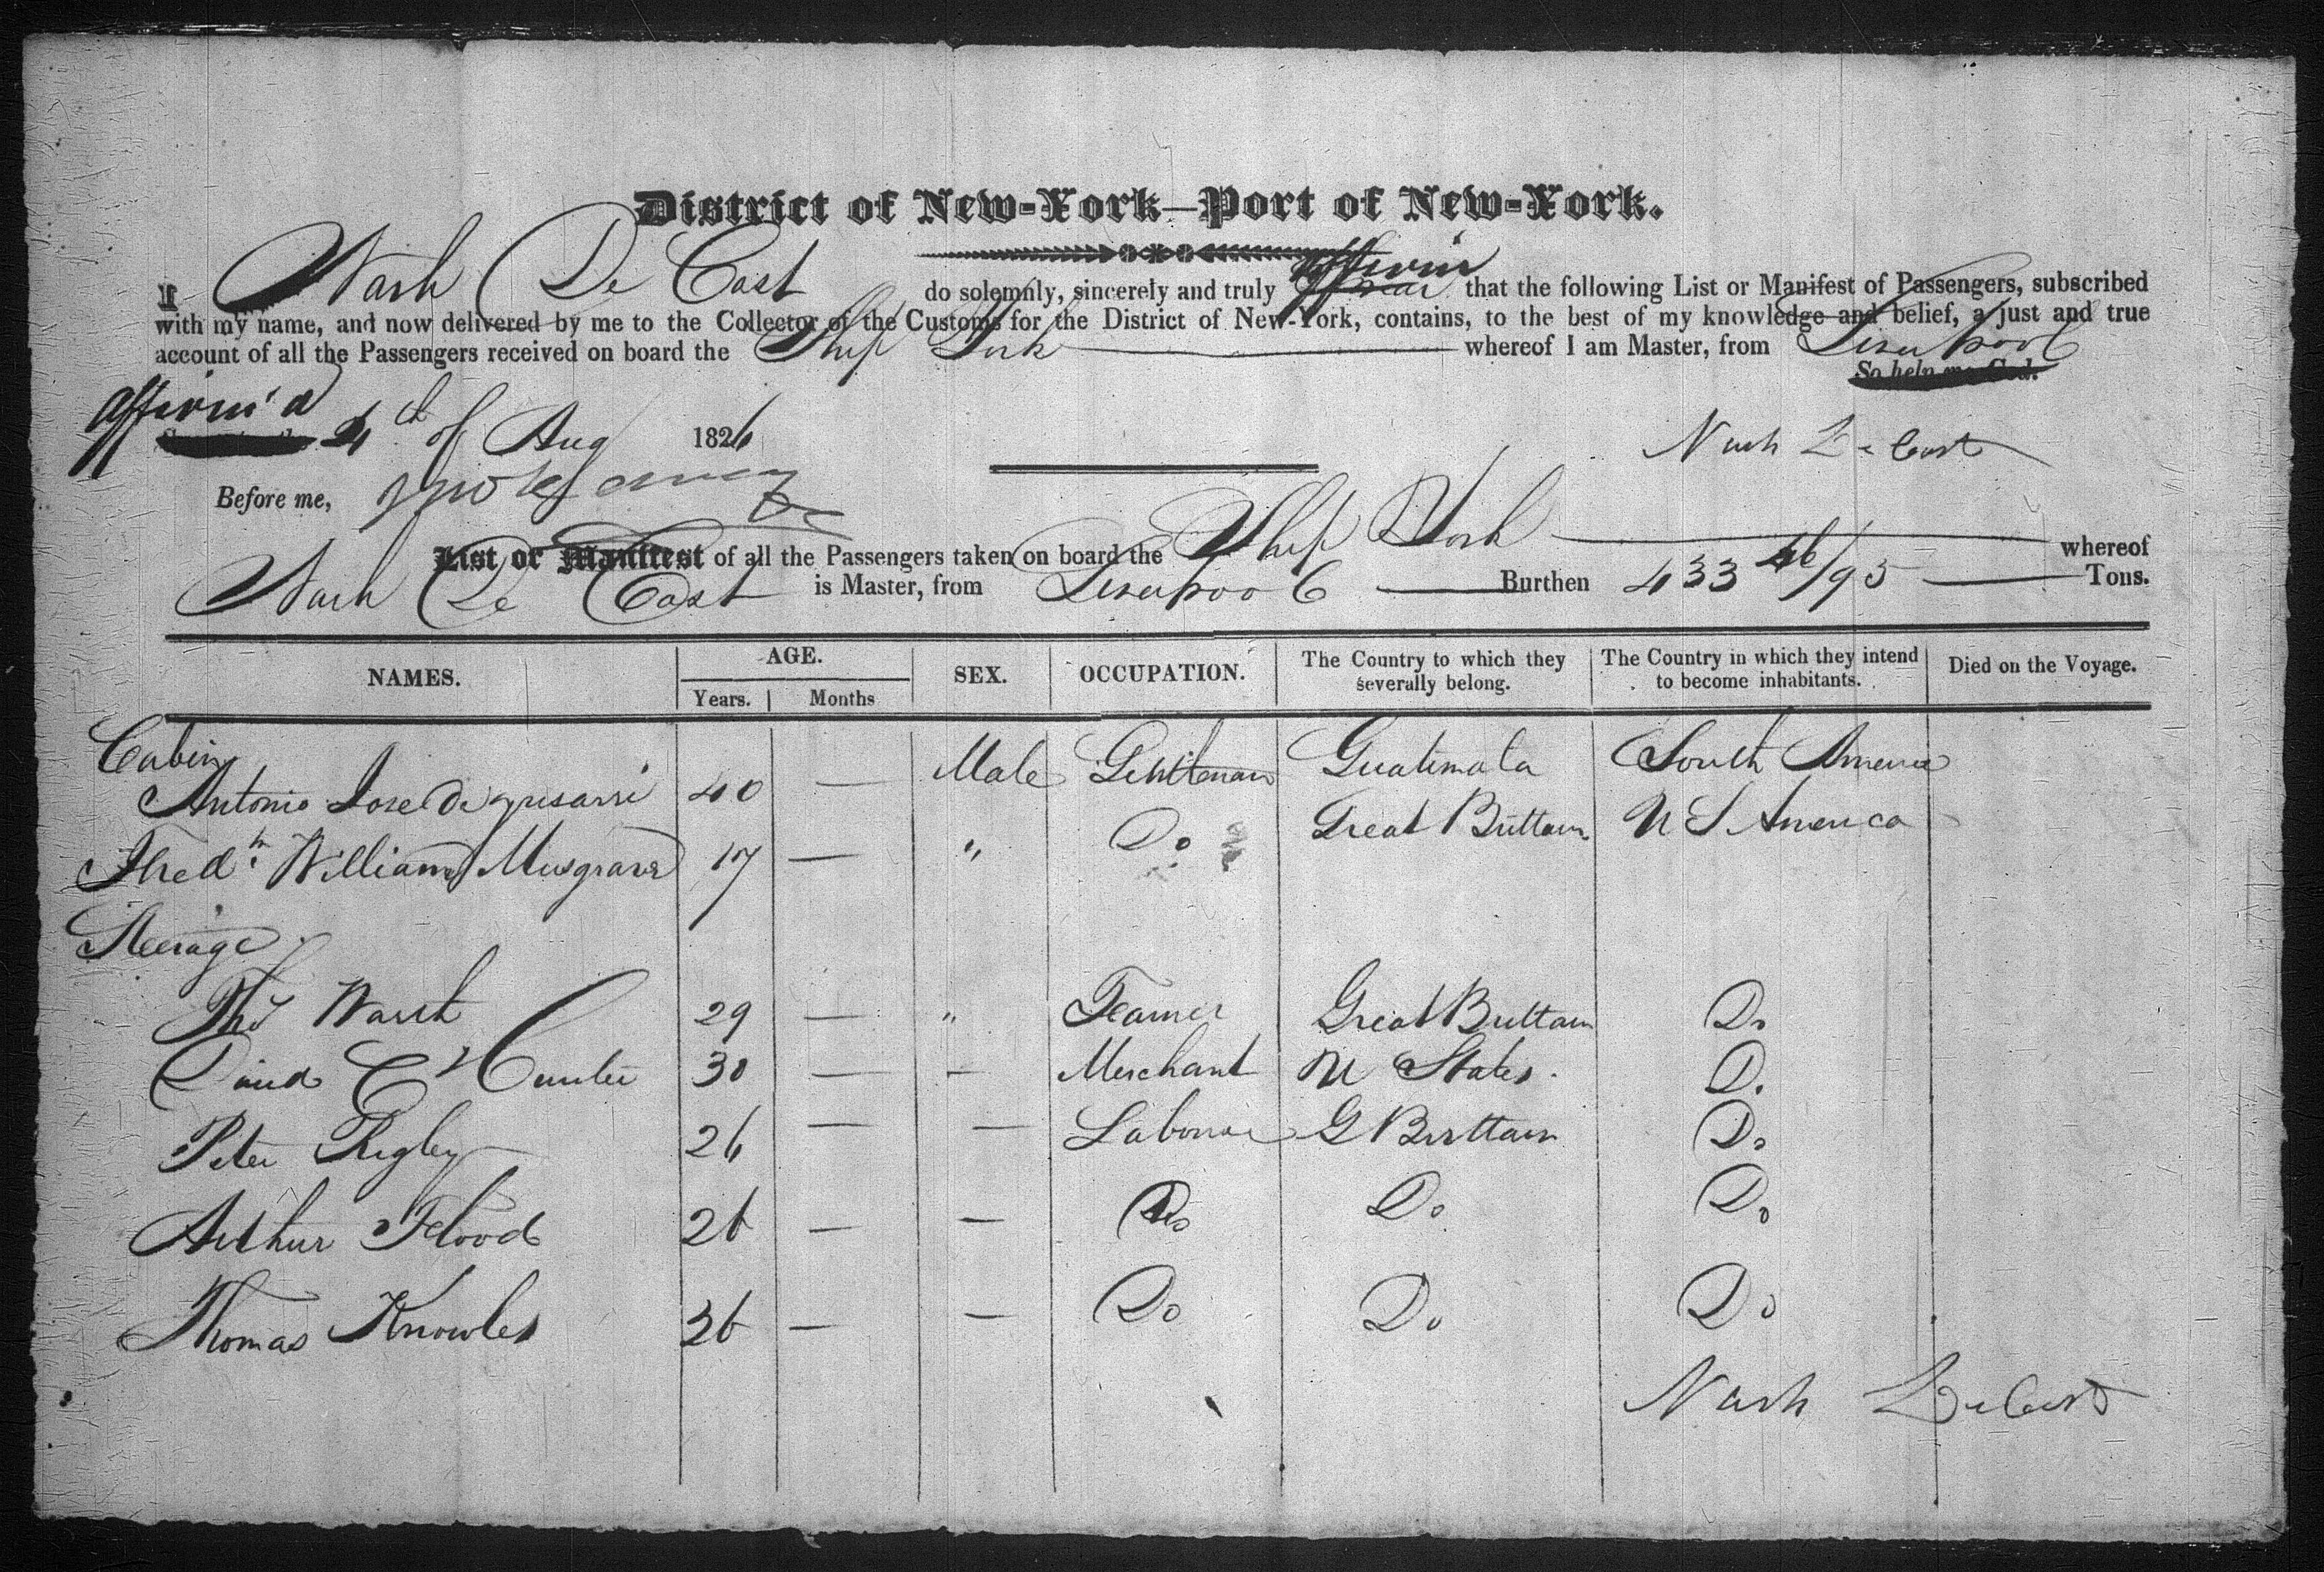 District of New-York—Port of New-York.
I Nash De Cost do solemnly, sincerely and truly affirm that the following List or Manifest of Passengers, subscribed
with my name, and now delivered by me to the Collector of the Customs for the District of New-York, contains, to the best of my knowledge and belief, a just and true
account of all the Passengers received on board the Ship York whereof I am Master, from Liverpool
So help me God.
affirm'd 4th of Aug 1826
Nash De Cost
Before me,
List or Manifest of all the Passengers taken on board the Ship York whereof
Nash De Cost is Master, from Liverpool Burthen 433 46/95 Tons.
NAMES. AGE. SEX. OCCUPATION. The Country to which they severally belong. The Country in which they intend to become inhabitants. Died on the Voyage.
Years. Months
Cabin
Antonio Jose De Yrisarri 40 — Male Gentleman Guatimala South America
Fredk William Musgrave 17 — " Do Great Brittain U S America
Steerage
Thos Warsh 29 — " Farmer Great Brittain Do
David C 30 — — Merchant U States. Do
Peter Rigby 26 — — Labourer G Brittain Do
Arthur Flood 26 — — Do Do Do
Thomas Knowles 36 — — Do Do Do
Nash De Cost